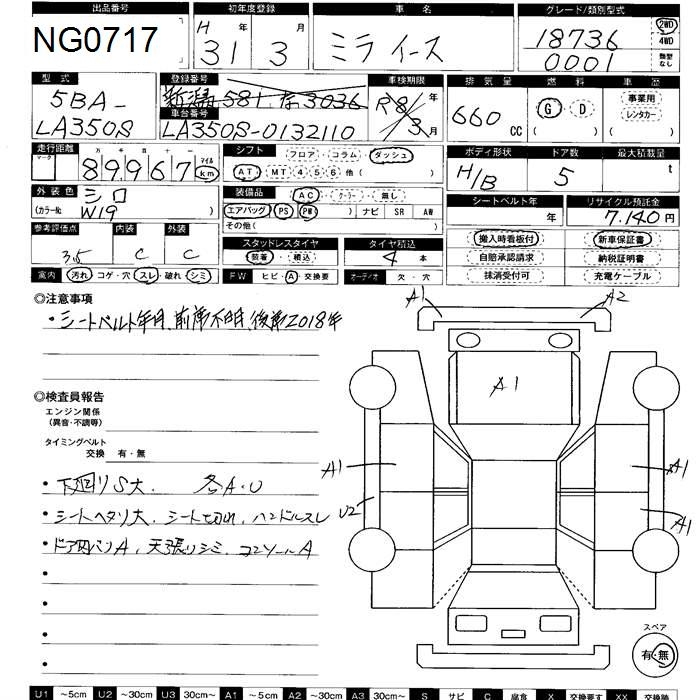 出品番号 初年度登録 車名 グレード/類別型式
NG0717 H 31年 3月 ミライース 18736 0001 2WD 4WD 類型なし
型式 登録番号 車検期限 排気量 燃料 車歴
5BA-LA350S 新潟 581 な 3036 R8年 3月 660cc G・D ( ) 事業用 レンタカー ( )
車台番号
LA350S-0132110
走行距離 シフト フロア コラム ダッシュ ボディ形状 ドア数 最大積載量
マーク 十万 万 千 百 十 一 89967 マイル km AT・MT 4 5 6 他( ) H/B 5 t
外装色 装備品 AC・クーラー・無し シートベルト年 リサイクル預託金
シロ エアバッグ PS PW ) ナビ SR AW 年 7,140円
(カラー№ W19 ) その他( )
参考評価点 内装 外装 スタッドレスタイヤ タイヤ積込 搬入時看板付 新車保証書
3.5 C C 装着・積込 4本 自賠承認請求 納税証明書
室内 汚れ コゲ・穴 スレ 破れ シミ FW ヒビ・A 交換要 オーディオ 欠・穴 抹消受付可 充電ケーブル
◎注意事項
・シートベルト年月、前席不明、後席2018年
◎検査員報告
エンジン関係
(異音・不調等)
タイミングベルト
交換 有・無
・下廻りS大. 各A.U
・シートヘタリ大. シート切れ. ハンドルスレ
・ドア内バリA. 天張りシミ. コンソールA
A1 A2
A1
A1 A1
U2 A1
スペア
有・無
U1 ～5cm U2 ～30cm U3 30cm～ A1 ～5cm A2 ～30cm A3 30cm～ S サビ C 腐食 X 交換要す XX 交換跡